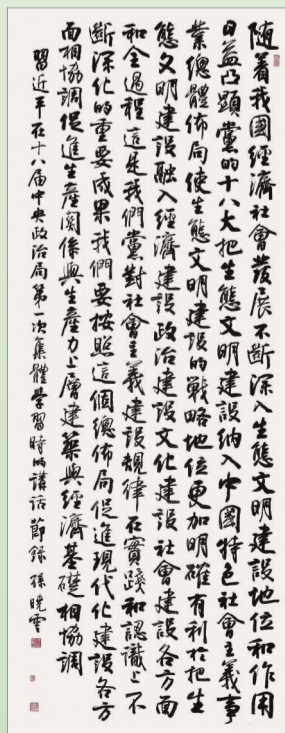 随着我國經濟社會發展不斷深入生態文明建設地位和作用
日益凸顯黨的十八大把生態文明建設納入中國特色社會主義事
業總體佈局使生態文明建設的戰略地位更加明確有利於把生
態文明建設融入經濟建設政治建設文化建設社會建設各方面
和全過程這是我們黨對社會主義建設規律在實踐和認識上不
斷深化的重要成果我們要按照這個總佈局促進現代化建設各方
面相協調促進生產關係與生產力上層建築與經濟基礎相協調
習近平在十八届中央政治局第一次集體學習時的講話節錄 孫曉雲